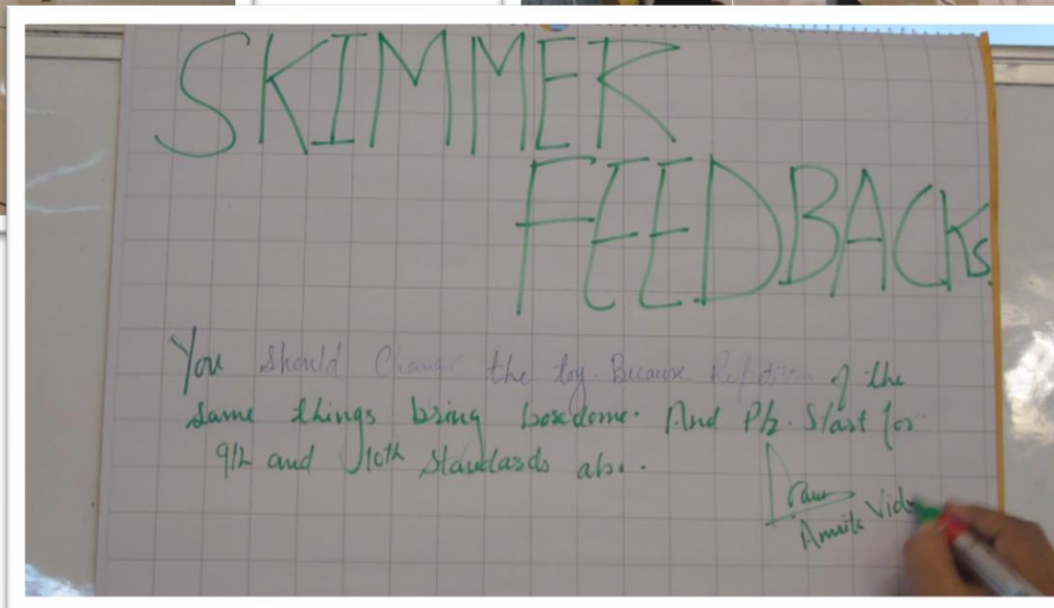 SKIMMER
FEEDBACKs.
You should Change the toy. Because Repetition of the
same things bring boredome. And Plz. Start for
9th and 10th standards also.
Amrita